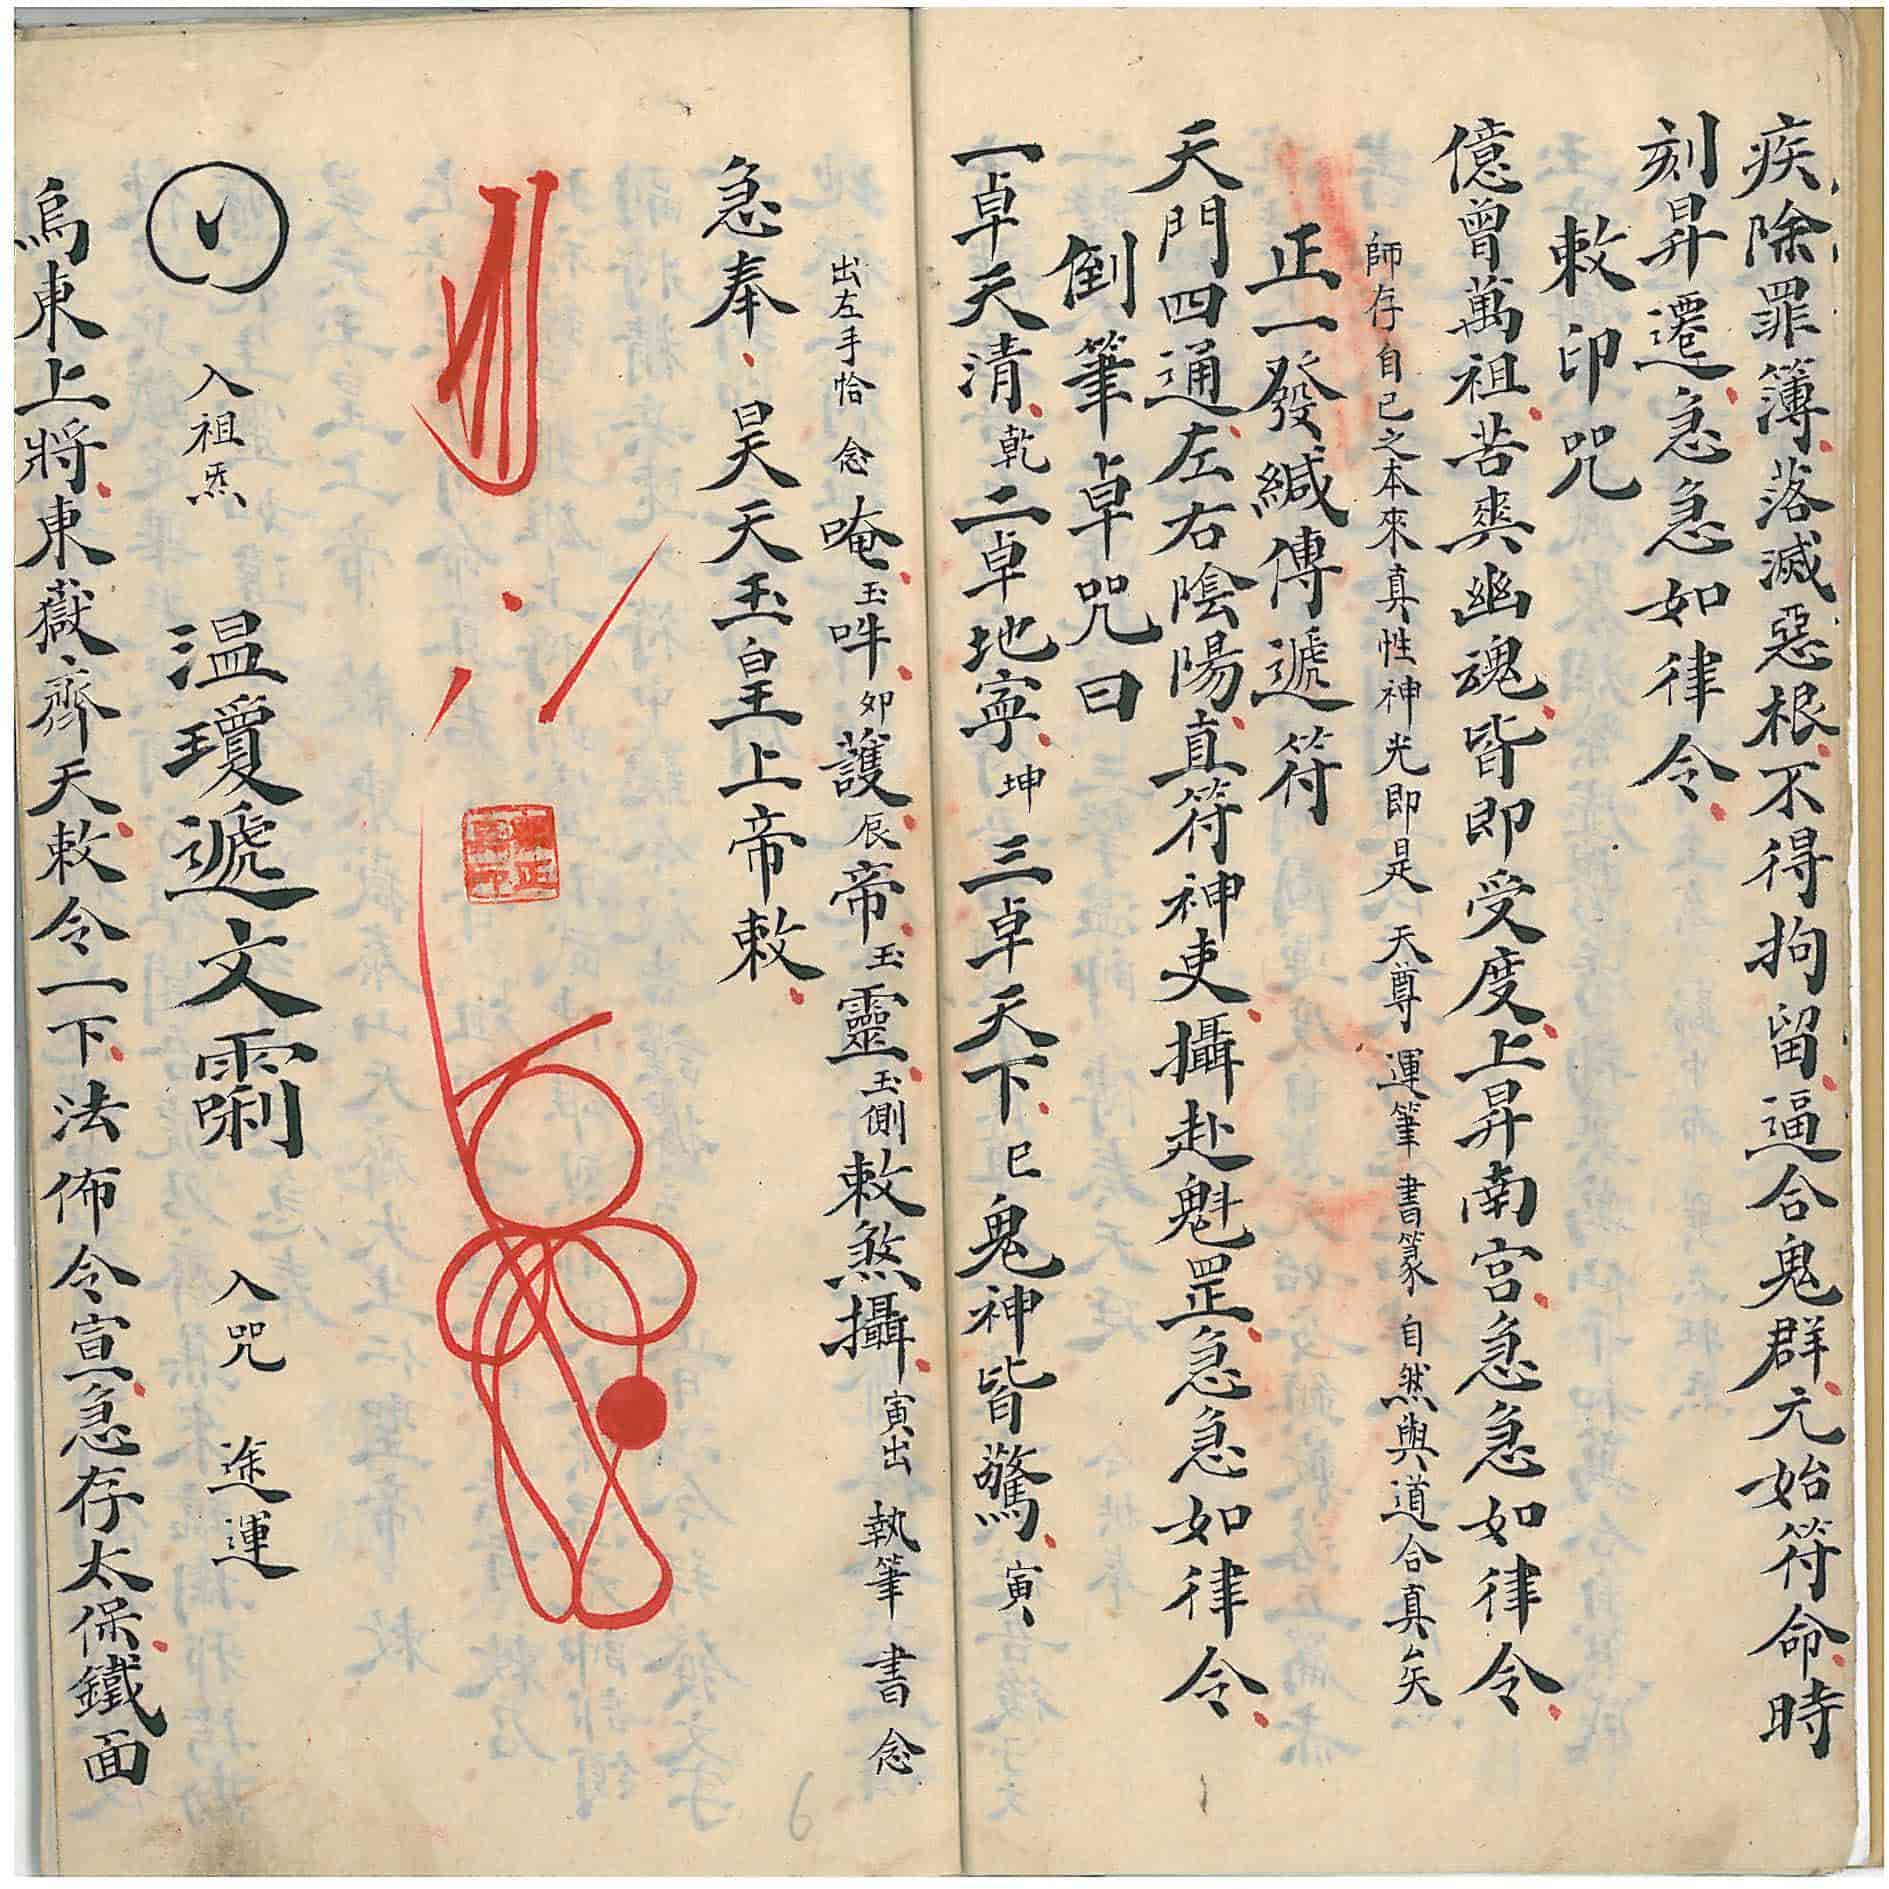 疾除罪簿落滅惡根不得拘留逼合鬼群元始符命時
刻昇遷急急如律令
敕印咒
億曾萬祖苦爽幽魂皆即受度上昇南宮急急如律令
師存自己之本來真性神光即是天尊運筆書篆自然與道合真矣
正一發緘傳遞符
天門四通左右陰陽直符神吏攝赴魁罡急急如律令
倒筆卓咒曰
一卓天清乾二卓地寧坤三卓天下巳鬼神皆驚寅
出左手恰念唵玉吽卯護辰帝玉靈玉側敕煞攝寅出執筆書念
急奉昊天玉皇上帝敕
入祖炁溫瓊遞文入咒途運
烏東上將東嶽齊天敕令一下法佈令宣急存太保鐵面
6